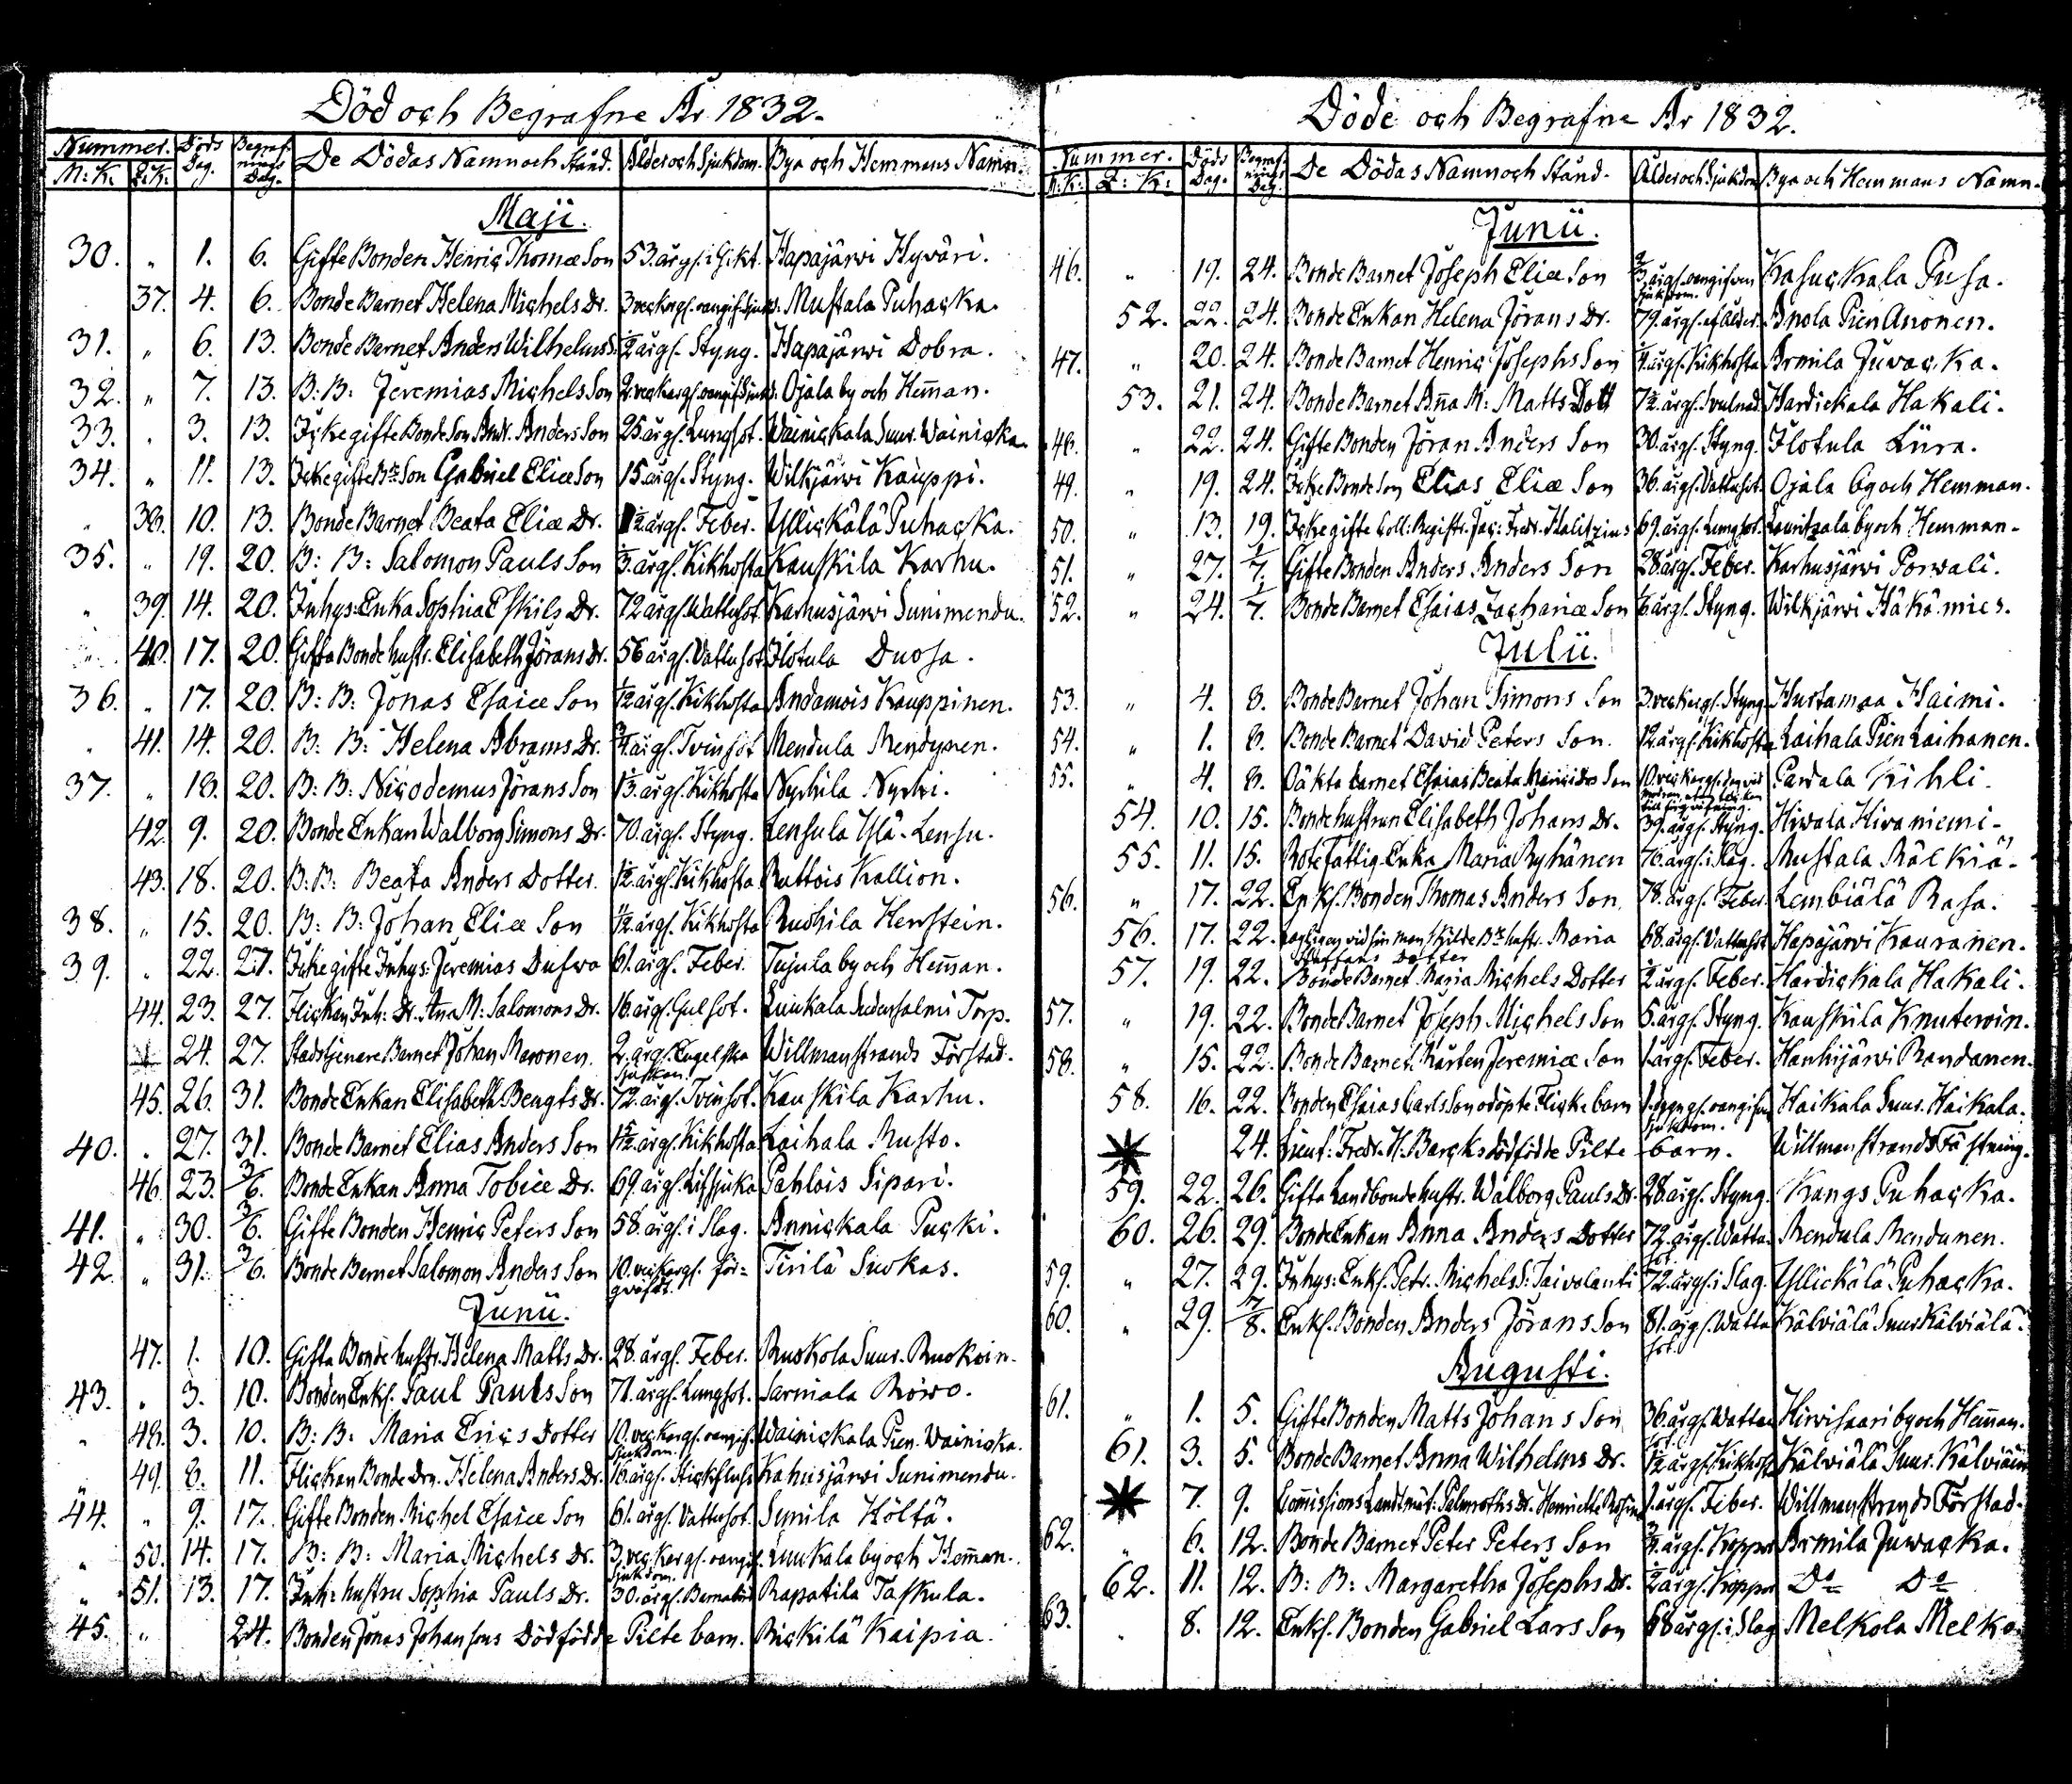 Död och Begrafne År 1832.
Nummer. Döds Dag. Begrafnings Dag. De Dödas Namn och Stånd. Ålder och Sjukdom. Bya och Hemmans Namn.
M:K. Q:K.
Maji.
30. " 1. 6. Gifte Bonden Henric Thomæ Son 53. årgl. i Gikt. Hapajärwi Hyväri.
37. 4. 6. Bonde Barnet Helena Michels Dr. 3 veckorgl. oangif. Sjukd. Mustala Puhacka.
31. " 6. 13. Bonde Barnet Anders Wilhelms S. ½ årgl. Styng. Hapajärwi Dobra.
32. " 7. 13. B: B: Jeremias Michels Son 2. veckorgl. oangif. Sjukd. Ojala by och Hem̄an.
33. " 3. 13. Icke gifte Bonde Son Andr. Anders Son 25. årgl. Lungsot. Wainickala Suur. Wainicka.
34. " 11. 13. Icke gifte Bde Son Gabriel Eliæ Son 15. årgl. Styng. Wilkjärwi Kauppi.
" 38. 10. 13. Bonde Barnet Beata Eliæ Dr. ½ årgl. Feber. Yllickälä Puhacka.
35. " 19. 20. B: B: Salomon Pauls Son årgl. Kikhosta Kauskila Karhu.
" 39. 14. 20. Inhys: Enka Sophia Eskils Dr. 72 årgl. Wattusot. Karhusjärwi Sunimendu.
" 40. 17. 20. Gifta Bonde hustr. Elisabeth Jörans Dr. 56 årgl. Vattusot. Ilotula Duosa.
36. " 17. 20. B: B: Jonas Esaiæ Son ½ årgl. Kikhosta Andamois Kauppinen.
" 41. 14. 20. B: B: Helena Abrams Dr. ¾ årgl. Tvinsot Mendula Mendynen.
37. " 18. 20. B: B: Nicodemus Jörans Son årgl. Kikhosta Nyrhila Nyrhi.
42. 9. 20. Bonde Enkan Walborg Simons Dr. 70. årgl. Styng. Lensula Ylä-Lensu.
43. 18. 20. B: B: Beata Anders Dotter. 1½ årgl. Kikhosta Ruttois Kallion.
38. " 15. 20. B: B: Johan Eliæ Son årgl. Kikhosta Ruohila Herrstein.
39. " 22. 27. Icke gifte Inhys: Jeremias Dufwa 61. årgl. Feber. Tujula by och Hem̄an.
44. 23. 27. Flickan Inh: Dr. An̄a M: Salomons Dr. 16. årgl. Gulsot. Luukala Torp.
24. 27. Stadstjenare Barnet Johan Maronen. 2. årgl. Engelska Sjukan. Willmanstrands Förstad.
45. 26. 31. Bonde Enkan Elisabeth Bengts Dr. 72. årgl. Tvinsot. Kauskila Karhu.
40. " 27. 31. Bonde Barnet Elias Anders Son årgl. Kikhosta Laihala Musto.
46. 23. 3/6. Bonde Enkan Anna Tobiæ Dr. 69. årgl. Lifsjuka Pahlois Sipari.
41. " 30. 3/6. Gifte Bonden Henric Peters Son 58. årgl. i Slag. Annickala Pucki.
42. " 31. 3/6. Bonde Barnet Salomon Anders Son 10. veckorgl. för- Tirilä Suokas.
Junii.
47. 1. 10. Gifta Bonde hustr. Helena Matts Dr. 28. årgl. Feber. Ruokola Suur. Ruokoin.
43. " 3. 10. Bonden Enkl. Paul Pauls Son 71. årgl. Lungsot. Sarviala Roiwo.
" 48. 3. 10. B: B: Maria Erics Dotter 10. veckorgl. oangif. Sjukdom. Wainickala Pien. Wainicka.
" 49. 8. 11. Flickan Bonde Drn. Helena Anders Dr. 16. årgl. Karhusjärwi Sunimendu.
44. " 9. 17. Gifte Bonden Michel Esaiæ Son 61. årgl. Vattusot. Simila Höltä.
" 50. 14. 17. B: B: Maria Michels Dr. 3. veckorgl. oangif. Sjukdom. Luukala by och Hem̄an.
" 51. 13. 17. Inh: hustru Sophia Pauls Dr. 30. årgl. Barnabörd Rapatila Taskula.
45. " 24. Bonden Jonas Johansons Dödfödde Pilte barn. Rickilä Kaipia.
Döde och Begrafne År 1832.
Nummer. Döds Dag. Begrafnings Dag. De Dödas Namn och Stånd. Ålder och Sjukdom Bya och Hemmans Namn.
M:K: Q:K:
Junii.
46. " 19. 24. Bonde Barnet Joseph Eliæ Son årgl. oangifven Sjukdom. Kasuckala Pusa.
52. 22. 24. Bonde Enkan Helena Jörans Dr. 79. årgl. af Ålder. Anola Pien Anonen.
47. " 20. 24. Bonde Barnet Henric Josephs Son årgl. Kikhosta Armila Juwacka.
53. 21. 24. Bonde Barnet An̄a M: Matts Dott 7½ årgl. Svulnad. Hardickala Hakali.
48. " 22. 24. Gifte Bonden Jöran Anders Son 30. årgl. Styng. Ilotula Liira.
49. " 19. 24. Icke Bonde Son Elias Eliæ Son 36. årgl. Vattusot. Ojala by och Hemman.
50. " 13. 19. Icke gifte Coll: Registr. Jac: Fredr. Halitzius 69. årgl. Lungsot. Lauritzala by och Hemman.
51. " 27. 1/7. Gifte Bonden Anders Anders Son 28 årgl. Feber. Karhusjärwi Porwali.
52. " 24. 1/7. Bonde Barnet Esaias Zachariæ Son årgl. Styng. Wilkjärwi Häkämies.
Julii.
53. " 4. 8. Bonde Barnet Johan Simons Son 3. veckorgl. Styng Hurtamaa Haimi.
54. " 1. 8. Bonde Barnet David Peters Son. årgl. Kikhosta Laihala Pien Laihanen.
55. " 4. 8. Oäkta barnet Esaias Beata Son 10. veckorgl. Pardala Kihli.
54. 10. 15. Bonde hustrun Elisabeth Johans Dr. 39. årgl. Styng. Hiwala Hivaniemi.
55. 11. 15. Rote Fattig Enka Maria Ryhänen 76. årgl. i Slag. Mustala Rälkiä.
56. " 17. 22. Enkl. Bonden Thomas Anders Son 78. årgl. Feber. Lembiälä Rasa.
56. 17. 22. Lagligen vid sin man skilde Bde hustr. Maria Staffans Dotter 68. årgl. Vattusot Hapajärvi Kauranen.
57. 19. 22. Bonde Barnet Maria Michels Dotter ½ årgl. Feber. Hardickala Hakali.
57. " 19. 22. Bonde Barnet Joseph Michels Son 5. årgl. Styng. Kauskila Knuteroin.
58. " 15. 22. Bonde Barnet Mårten Jeremiæ Son 1. årgl. Feber. Hanhijärwi Randanen.
58. 16. 22. Bonden Esaias Carls Son odöpte Flickebarn oangifven Sjukdom. Haikala Suur. Haikala.
24. Lieut: Fredr. H. Barcks dödfödde Pilte barn. Willmanstrands Fästning.
59. 22. 26. Gifta Landbonde hustr. Walborg Pauls Dr. 28. årgl. Styng. Kangs Puhacka.
60. 26. 29. Bonde Enkan Anna Anders Dotter 72. årgl. Wattusot. Mendula Mendunen.
59. " 27. 29. Inhys: Enkl. Petr. Michels S: Taivalanti 72. årgl. i Slag. Yllickälä Puhacka.
60. " 29. /8. Enkl. Bonden Anders Jörans Son 81. årgl. Wattusot. Kälviälä Suur Kälviälä.
Augusti.
61. " 1. 5. Gifte Bonden Matts Johans Son 36. årgl. Wattusot. Hirvisaari by och Hem̄an.
61. 3. 5. Bonde Barnet Anna Wilhelms Dr. 1½ årgl. Kikhosta Kälviälä Suur. Kälviäin
7. 9. Com̄issions Landtmät: Palmroths Dr. Henriette Rosina 1. årgl. Feber. Willmanstrands Förstad.
62. " 6. 12. Bonde Barnet Peter Peters Son ¾ årgl. Koppor Armila Juwacka.
62. 11. 12. B: B: Margaretha Josephs Dr. ½ årgl. Koppor Do Do
63. " 8. 12. Enkl. Bonden Gabriel Lars Son 68 årgl. i Slag Melkola Melko.